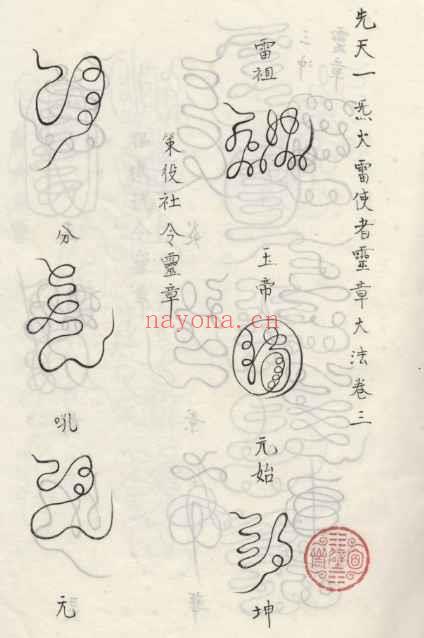 先天一炁火雷使者靈章大法卷三
雷祖
玉帝
元始
坤
策役社令靈章
分
吼
元
nayona.cn